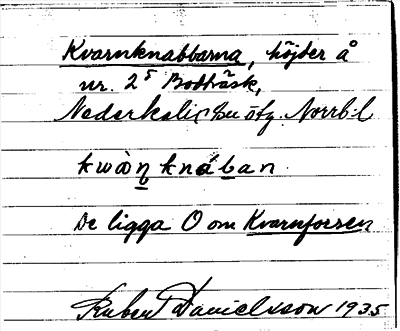 Kvarnknabbarna, höjder å
nr. 2⁵ Bodträsk,
Nederkalix sn öfg. Norrb.l
kwàn̲ knáb̲an.
De ligga O om Kvarnforsen
Ruben Danielsson 1935